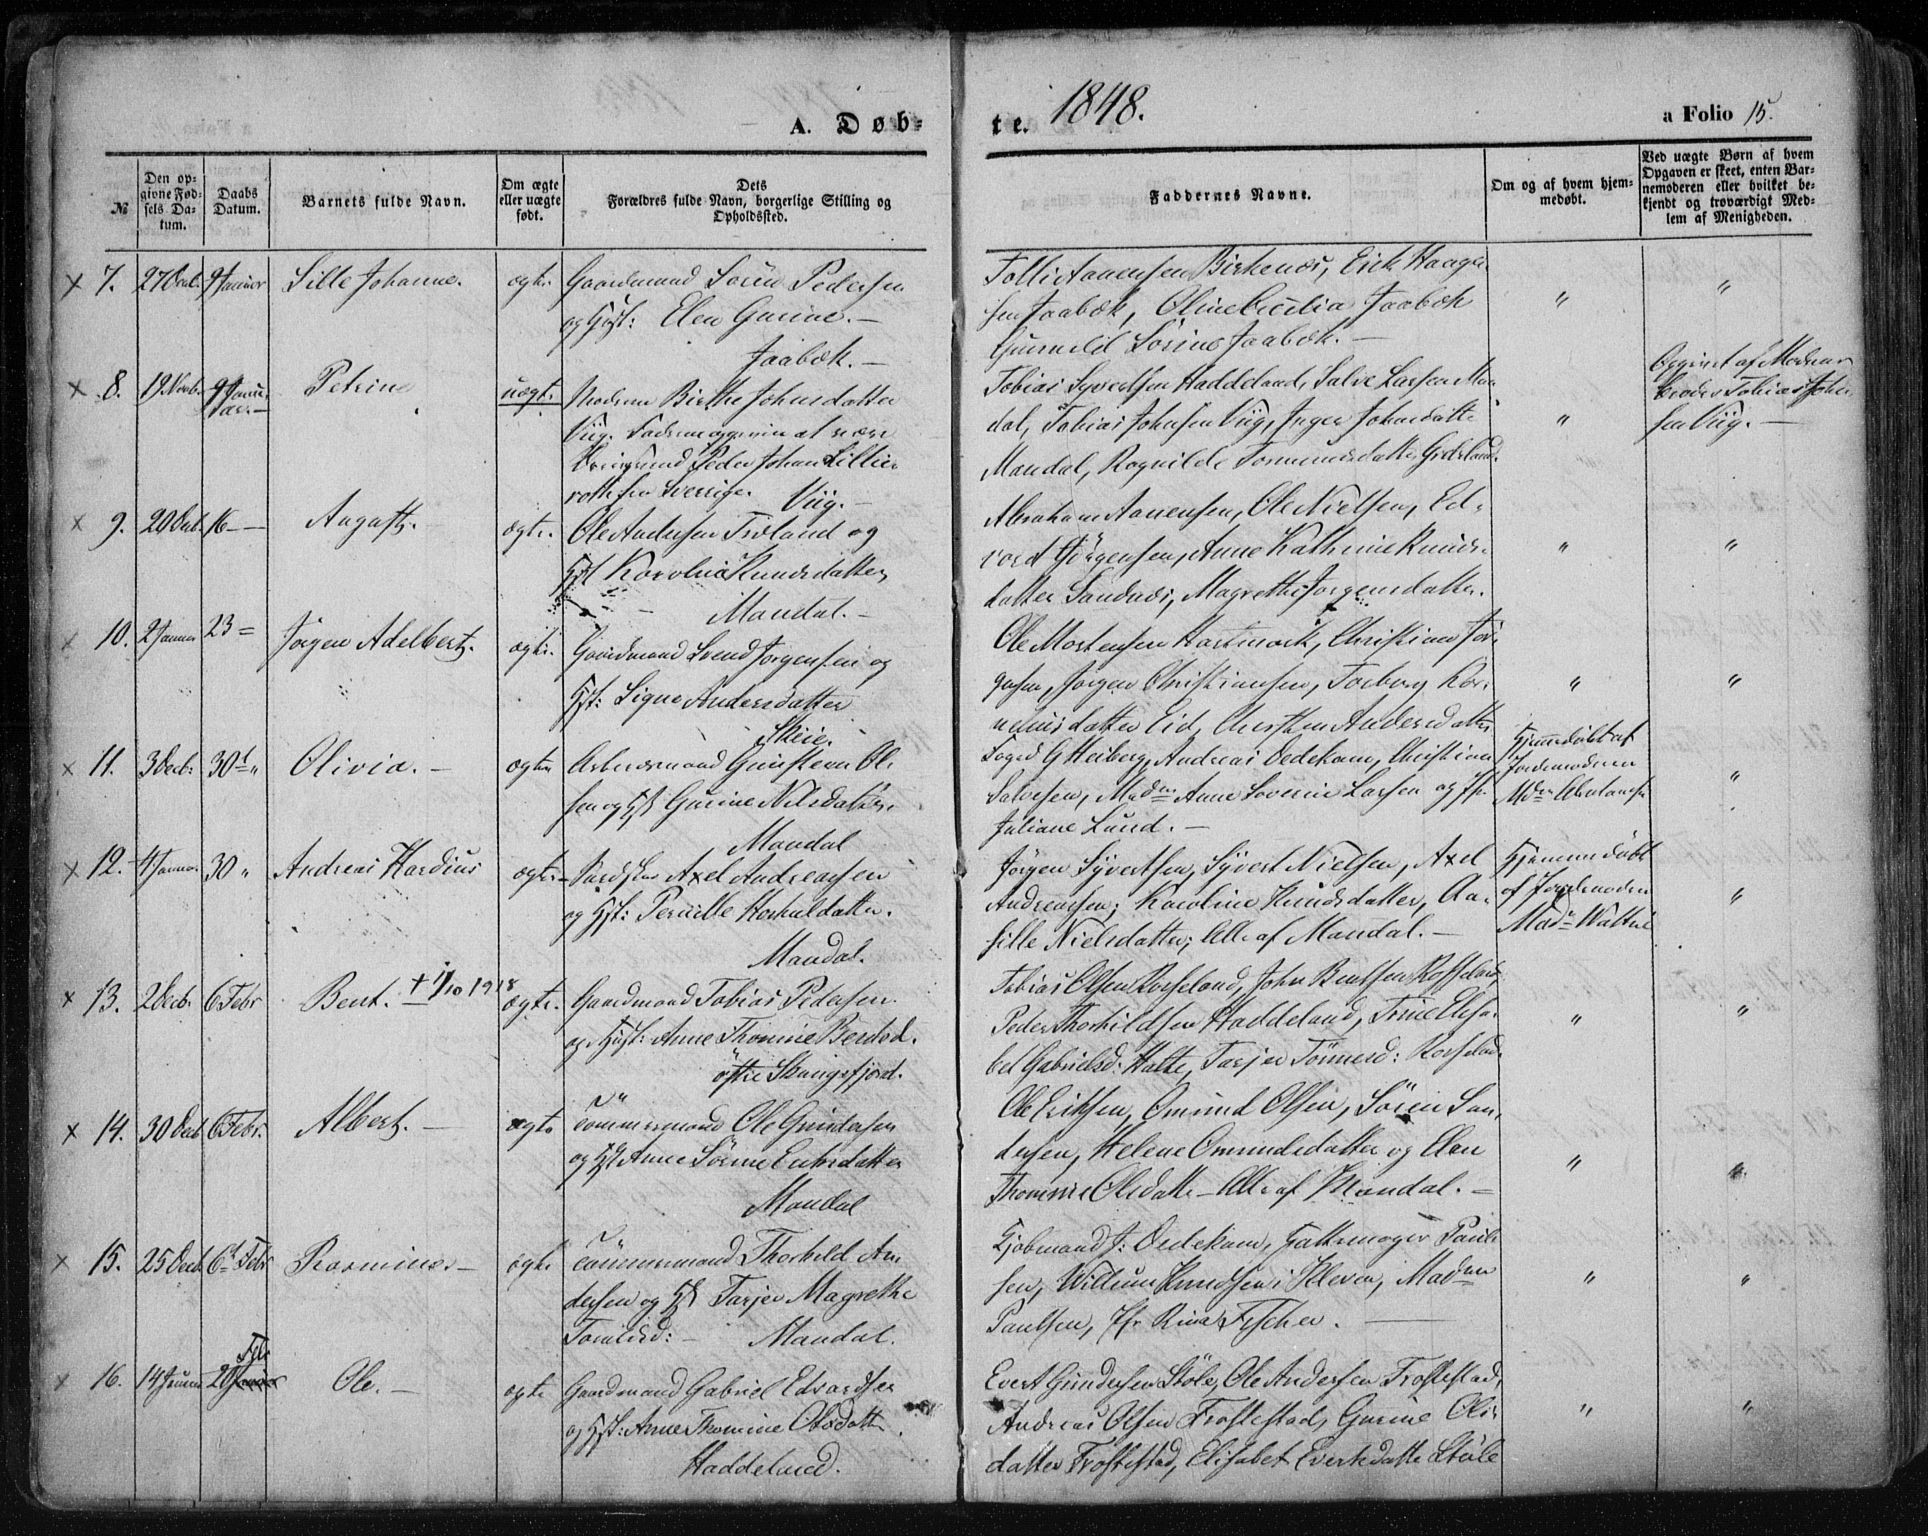 A. Døb-
te. 1848.
a Folio 15.
№
Den op-
givne Fød-
sels Da-
tum.
Daabs
Datum.
Barnets fulde Navn.
Om ægte
eller uægte
født.
Dets
Forældres fulde Navn, borgerlige Stilling og
Opholdssted.
Faddernes Navne.
Om og af hvem hjem-
medøbt.
Ved uægte Børn af hvem
Opgaven er skeet, enten Bar-
nemoderen eller hvilket be-
kjendt og troværdigt Med-
lem af Menigheden.
× 7. 27 Decb. 9 Januar Sille Johanne. ægte Gaardmand Sørin Pedersen
og Hust: Elen Gurine. —
Jaabæk. —
Aanensen Birkenæs, Erik
sen Jaabæk, Oline Cecilia Jaabæk
Gunneld Sørine Jaabæk. —
" "
× 8. 19 9 Janu-
ar. — Petrine uægte. Moderen Birthe Johnsdatter
Viig. Faderen at være
Peder Johan
Sverrige. Viig. —
Tobias Syvertsen Haddeland, Salve Larsen Man-
dal, Tobias Johnsen Viig, Inger Johnsdatte
Mandal, Rognilde
"
Opgivet af Moderens
broder Tobias John-
sen Viig. —
× 9. 20 Decb. 16 — August. ægte. Ole Andersen Frøland og
Hst Karoline Knudsdatter,
Mandal. —
Abraham Aanensen, Ole Nielsen, Ed-
vard Jörgensen, Anne Kathrine Knuds-
datter Sandnæs, Magrethe Jørgensdatter.
" "
× 10. 2 Januar 23 = Jørgen Adelbert. ægte. Gaardmand Svend Jørgensen og
Hst: Signe Andersdatter
Skeie.
Ole Mortensen Hartmark, Christian Jør-
gensen, Jørgen Christiansen, Torborg Cor-
neliusdatter Eid, Andersdatter
" "
× 11. 3 Decb: 30te " Olivia. — ægte Arbeidsmand Gunsteen Ol-
sen og Hst Gurine Nilsdatter.
Mandal
Foged G Heiberg, Andreas Oedekam, Christian
Salvesen, Madme Anne Severine Larsen og Jfr
Juliane Lund. —
Hjemmedøbt af
Jordemoderen
Mdm
"
× 12. 4 Januar. 30 " Andreas Hardius ægte. Axel Andreasen
og Hst: Pernille Haskuldatter.
Mandal.
Jørgen Syvertsen, Syvert Nielsen, Axel
Andreassen, Karoline Knudsdatter, Aa-
sille Nielsdatter; Alle af Mandal. —
Hjemmedøbt
af Jordemoder
Madm Wattne
"
× 13. 2 Decb. 6 Febr Bent. + 1/10 1918 ægte. Gaardmand Tobias Pedersen
og Hust: Anne Thomine Bentsd.
østre Skougsfjord.
Tobias Olsen Rosseland, John Bentsen Rosseland,
Peder Thorkildsen Haddeland, Trine Elisa-
bet Gabrielsd: Halte, Tarjer Tönnesd: Rosseland
" "
× 14. 30 Decb 6 Febr. Albert. — ægte Tømmermand Ole Gundersen
og Hst Anne Sørine Eriksdatter
Mandal
Ole Eriksen, Omund Olsen, Sören San-
dersen, Helene Omundsdatter og Elen
Thomine Olsdatte — Alle af Mandal. —
" "
× 15. 25 Decb 6te Febr Rasmine. — ægte Tömmermand Thorkild An-
dersen og Hst Tarjer Magrethe
Mandal.
Kjøbmand J: Oedekam, Paul-
sen, Willum Knudsen i Kleven, Madme
Paulsen, Jfr Rina Fischer. —
" "
× 16. 14 Januar 20 Feb Ole. — ægte Gaardmand Gabriel Edvardsen
og Hst: Anne Thomine Olsdatter.
Haddeland.
Evert Gundersen Støle, Ole Andersen Frøstestad,
Andreas Olsen Frøstestad, Gurine Ols-
datter Frøstestad, Elisabet Evertsdatte Støle
" "